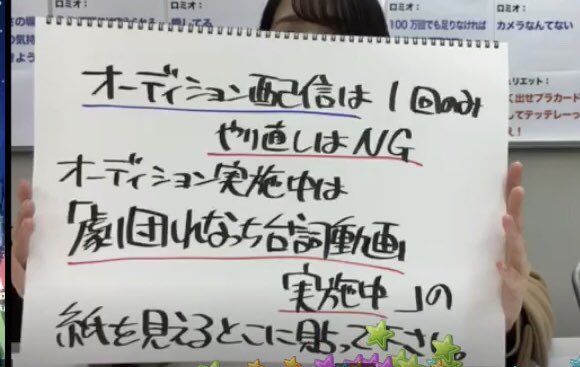 ロミオ：
ロミオ：
ロミオ：
ロミオ：
100万回でも足りなければ
カメラなんてない
オーディション配信は1回のみ
やり直しはNG
オーディション実施中は
「劇団れなっち台詞動画
実施中」の
紙を見えるとこに貼って下さい。
ュリエット：
く出せプラカード
してテッテレーっ
え！
の気持